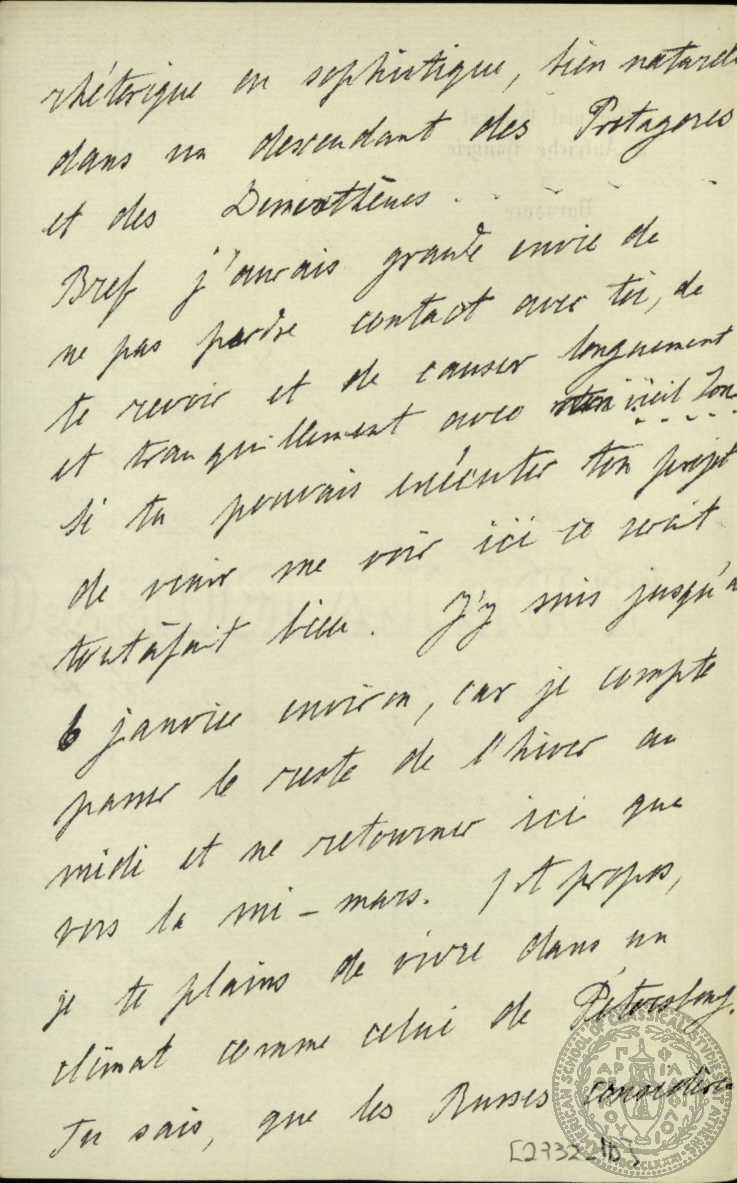 rhétorique ou sophistique, bien naturel
dans un descendant des Protagores
et des Demosthènes . . . .
Bref j'aurais grande envie de
ne pas perdre contact avec toi, de
te revoir et de causer longuement
et tranquillement avec vieil Zon
Si tu pouvais exécuter ton projet
de venir me voir ici ce serait
toutàfait bien. J'y suis jusqu'a
6 janvier environ, car je compte
passer le reste de l'hiver au
midi et ne retourner ici que
vers la mi-mars. A propos,
je te plains de vivre dans un
climat comme celui de Pétersbourg.
Tu sais, que les Russes considère
[27322 1b]
AMERICAN SCHOOL OF CLASSICAL STUDIES AT ATHENS
MDCCCLXXXI